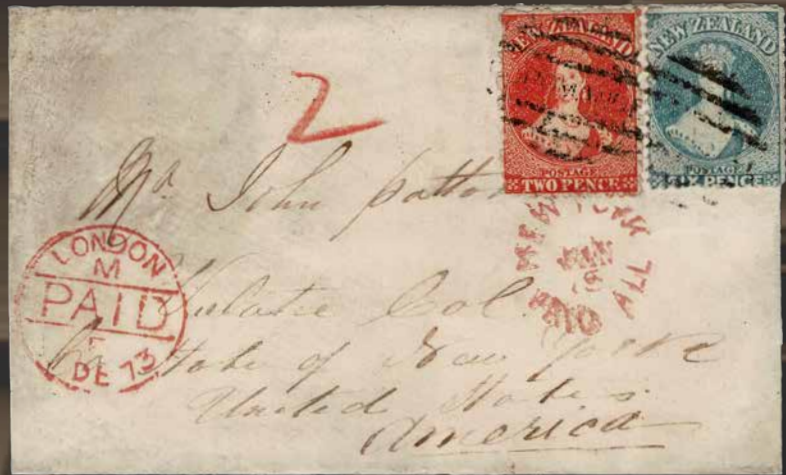 NEW ZEALAND
POSTAGE
TWO PENCE
NEW ZEALAND
POSTAGE
SIX PENCE
2
Mr John Patton
NEW YORK
JAN
PAID ALL
LONDON
M
PAID
DE 73
Col
State of New York
United States
America